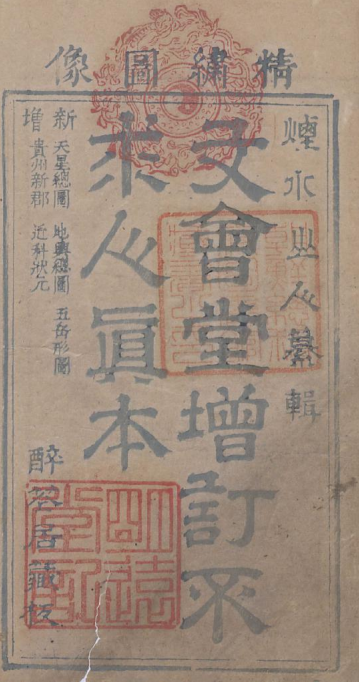 精繡圖像
煙水山人纂輯
文會堂增訂不
求人眞本
新增
天星總圖 地輿總圖 五岳形圖
貴州新郡 近科狀元
醉居藏板